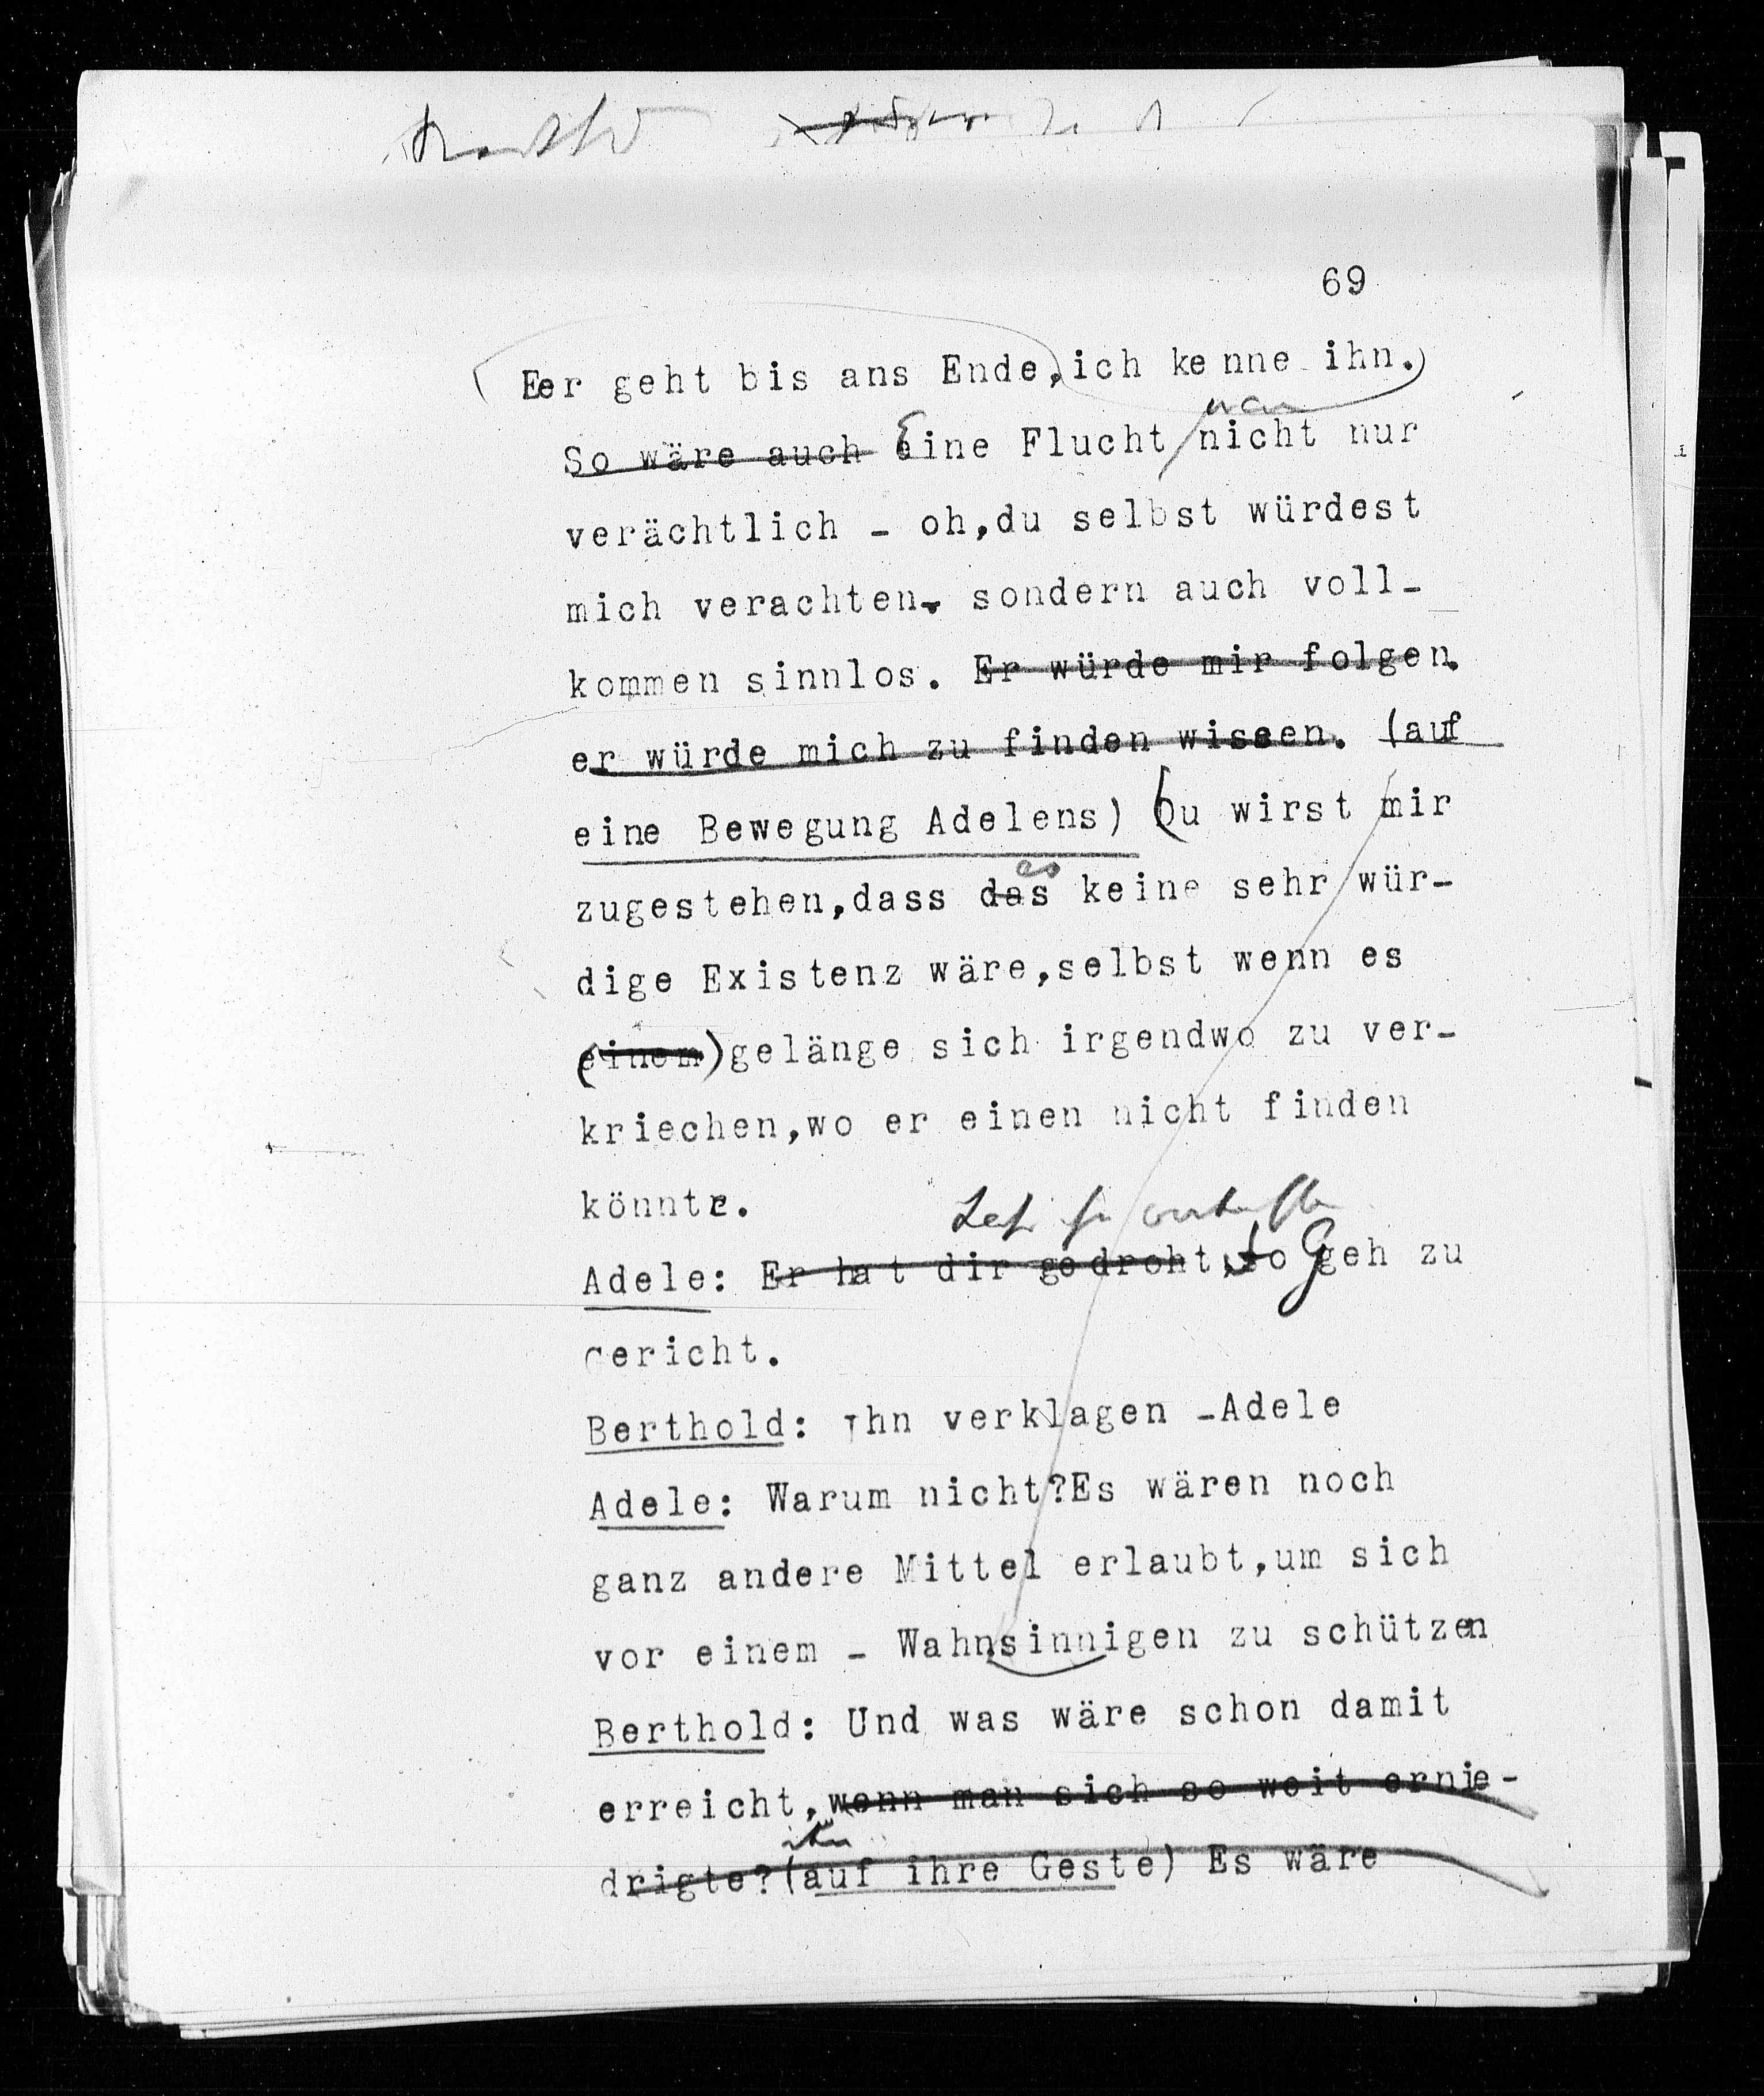 69
Eer geht bis ans Ende, ich kenne ihn.
wär
So wäre auch Eine Flucht nicht nur
verächtlich - oh,du selbst würdest
mich verachten, sondern auch voll-
kommen sinnlos. Er würde mir folgen.
er würde mich zu finden wissen. (auf
eine Bewegung Adelens) (Du wirst mir
es
zugestehen,dass das keine sehr wür-
dige Existenz wäre,selbst wenn es
(einem) gelänge sich irgendwo zu ver-
kriechen,wo er einen nicht finden
könnte.
Adele: Er hat dir gedroht, so Geh zu
Gericht.
Berthold: Ihn verklagen -Adele
Adele: Warum nicht?Es wären noch
ganz andere Mittel erlaubt,um sich
vor einem - Wahnsinnigen zu schützen
Berthold: Und was wäre schon damit
erreicht,wenn man sich so weit ernie-
drigte?(auf ihre Geste) Es wäre